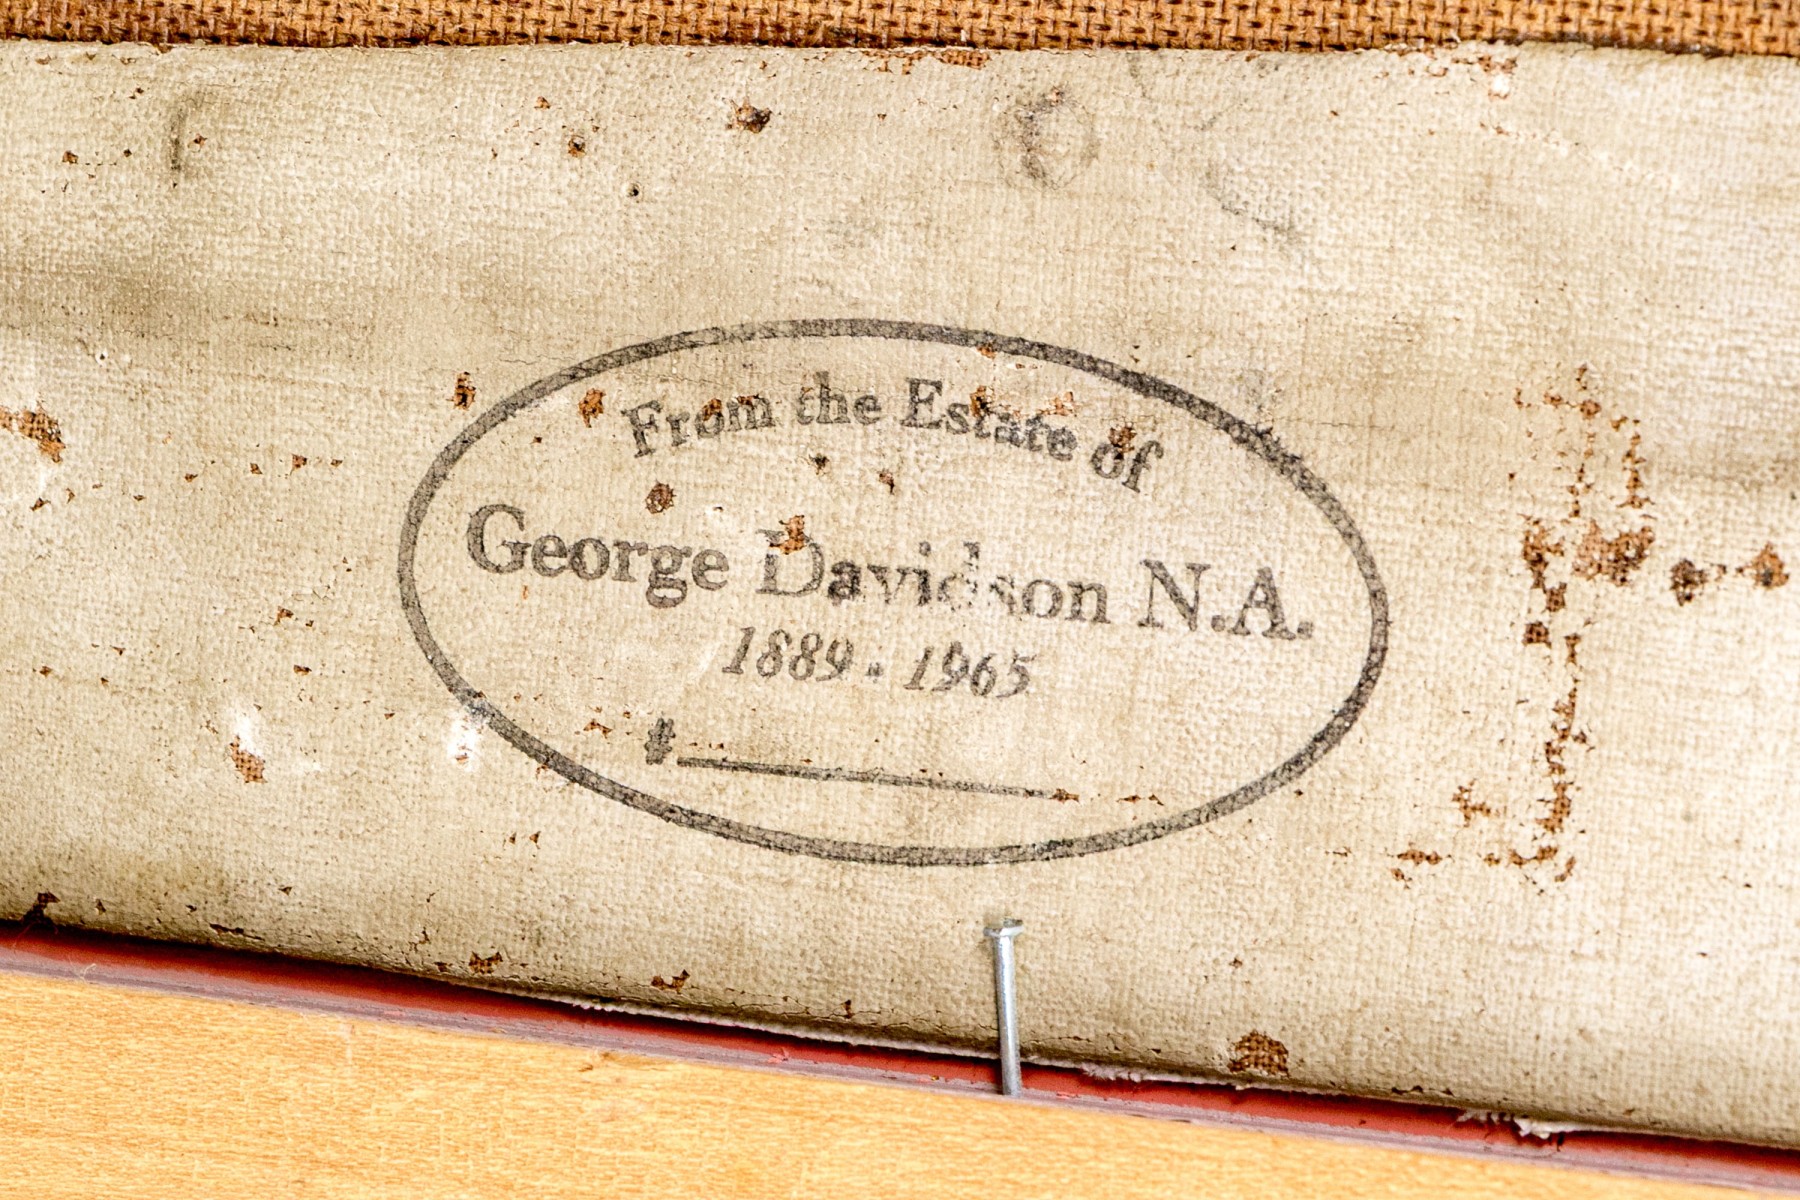 From the Estate of
George Davidson N.A.
1889 . 1965
#